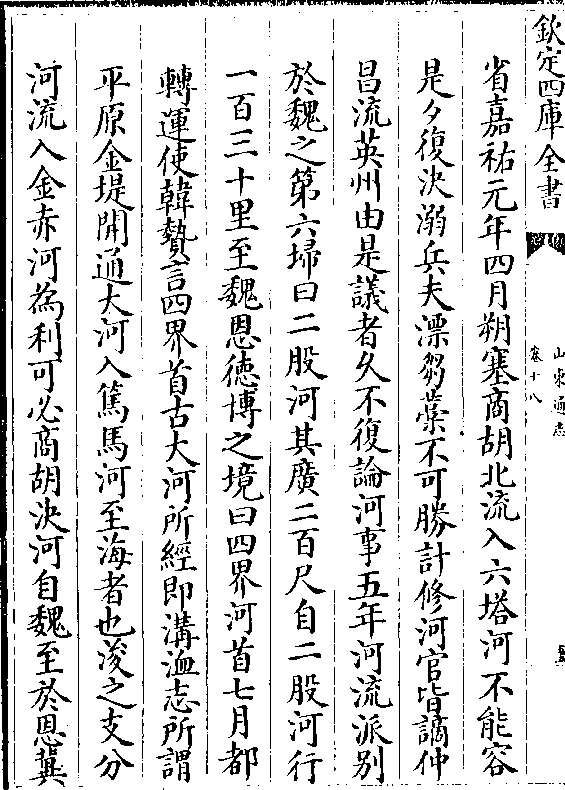 欽定四庫全書
山東通志
卷十八
省嘉祐元年四月朔塞商胡北流入六塔河不能容
是夕復決溺兵夫漂芻藁不可勝計修河官皆謫仲
昌流英州由是議者久不復論河事五年河流派別
於魏之第六埽曰二股河其廣二百尺自二股河行
一百三十里至魏恩徳博之境曰四界首河七月都
轉運使韓贄言四界首古大河所經即溝洫志所謂
平原金堤開通大河入篤馬河至海者也浚之支分
河流入金赤河為利可必商胡決河自魏至於恩冀